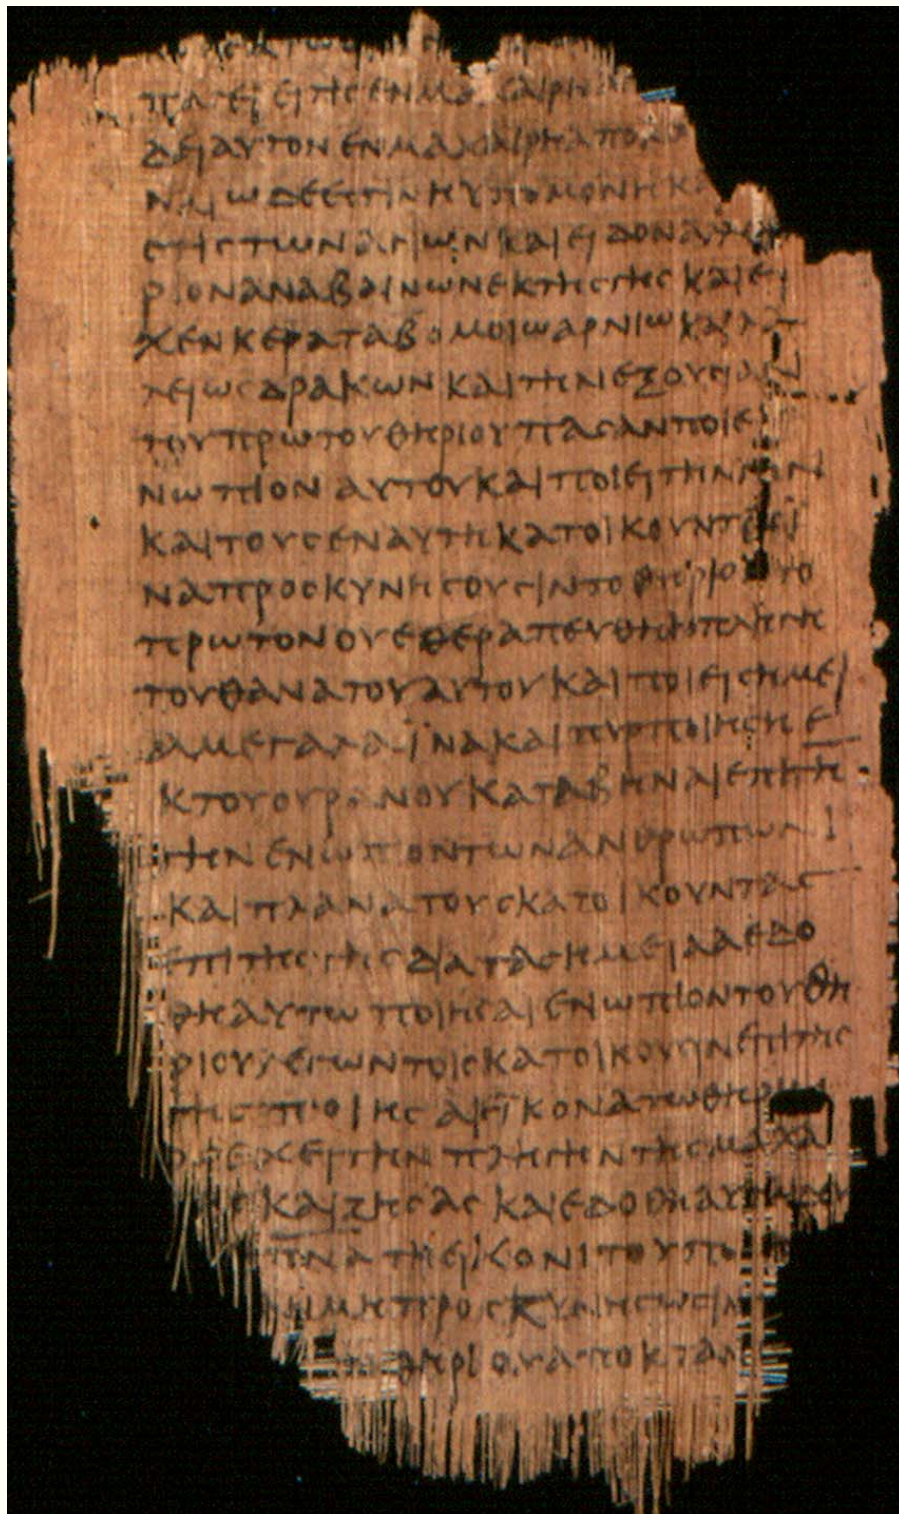 ΕΙ ΤΙΣ ΕΝ ΜΑΧΑΙΡΗ
ΔΕΙ ΑΥΤΟΝ ΕΝ ΜΑΧΑΙΡΗ ΑΠΟ
ΝΑΙ ΩΔΕ ΕΣΤΙΝ Η ΥΠΟΜΟΝΗ ΚΑ
ΣΤΙΣ ΤΩΝ ΑΓΙΩΝ ΚΑΙ ΕΙΔΟΝ ΑΛΛΟ
ΡΙΟΝ ΑΝΑΒΑΙΝΩΝ ΕΚ ΤΗΣ ΓΗΣ ΚΑΙ ΕΙ
ΧΕΝ ΚΕΡΑΤΑ Β ΟΜΟΙΩ ΑΡΝΙΩ ΚΑΙ ΛΑ
ΛΕΙ ΩΣ ΔΡΑΚΩΝ ΚΑΙ ΤΗΝ ΕΞΟΥΣΙΑΝ
ΤΟΥ ΠΡΩΤΟΥ ΘΗΡΙΟΥ ΠΑΣΑΝ ΠΟΙΕΙ
ΝΩΠΙΟΝ ΑΥΤΟΥ ΚΑΙ ΠΟΙΕΙ ΤΗΝ ΓΗΝ
ΚΑΙ ΤΟΥΣ ΕΝ ΑΥΤΗ ΚΑΤΟΙΚΟΥΝΤΕΣ Ϊ
ΝΑ ΠΡΟΣΚΥΝΗΣΟΥΣΙΝ ΤΟ ΘΗΡΙΟΝ ΤΟ
ΠΡΩΤΟΝ ΟΥ ΕΘΕΡΑΠΕΥΘΗ Η ΠΛΗΓΗ
ΤΟΥ ΘΑΝΑΤΟΥ ΑΥΤΟΥ ΚΑΙ ΠΟΙΕΙ ΣΗΜΕΙ
Α ΜΕΓΑΛΑ ΪΝΑ ΚΑΙ ΠΥΡ ΠΟΙΗΣΗ Ε
Κ ΤΟΥ ΟΥΡΑΝΟΥ ΚΑΤΑΒΗΝΑΙ ΕΠΙ ΤΗ
ΓΗΝ ΕΝΩΠΙΟΝ ΤΩΝ ΑΝΘΡΩΠΩΝ
ΚΑΙ ΠΛΑΝΑ ΤΟΥΣ ΚΑΤΟΙΚΟΥΝΤΑΣ
ΕΠΙ ΤΗΣ ΓΗΣ ΔΙΑ ΤΑ ΣΗΜΕΙΑ Α ΕΔΟ
ΘΗ ΑΥΤΩ ΠΟΙΗΣΑΙ ΕΝΩΠΙΟΝ ΤΟΥ ΘΗ
ΡΙΟΥ ΛΕΓΩΝ ΤΟΙΣ ΚΑΤΟΙΚΟΥΣΙΝ ΕΠΙ ΤΗΣ
ΓΗΣ ΠΟΙΗΣΑΙ ΕΙΚΟΝΑ ΤΩ ΘΗΡΙΩ
ΕΧΕΙ ΤΗΝ ΠΛΗΓΗΝ ΤΗΣ ΜΑΧΑΙ
ΡΗΣ ΚΑΙ ΖΗΣΑΣ ΚΑΙ ΕΔΟΘΗ ΑΥΤΩ
ΠΝΑ ΤΗ ΕΙΚΟΝΙ ΤΟΥ
ΜΗ ΠΡΟΣΚΥΝΗΣΩΣΙΝ
ΘΗΡΙΟΥ ΑΠΟΚΤΑΝ